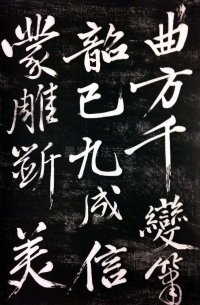 曲方千變簫
韶已九成信
蒙雕斲美